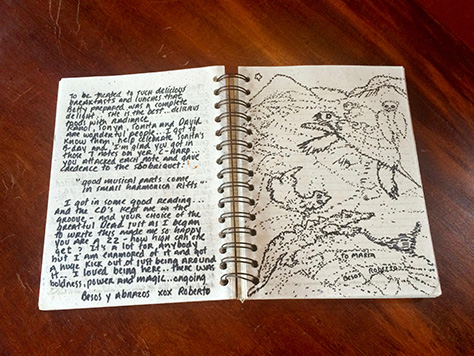 TO BE TREATED TO SUCH DELICIOUS
BREAKFASTS AND LUNCHES THAT
BETTY PREPARED WAS A COMPLETE
DELIGHT.. SHE IS THE BEST..
FOODS WITH RADIANCE
SONYA, SONITA AND DAVID
ARE WONDERFUL PEOPLE.. I GOT TO
KNOW THEM, HELP CELEBRATE SONITA'S
B-DAY AND I'M GLAD YOU GOT IN
THOSE 7 NOTES ON YER C-HARP...
YOU ATTACKED EACH NOTE AND GAVE
CREDENCE TO THE SOBRIQUET:
"GOOD MUSICAL PARTS COME
IN SMALL HARMONICA RIFFS"
I GOT IN SOME GOOD READING...
AND THE CD'S KEPT ME IN THE
GROOVE, - AND YOUR CHOICE OF THE
GREATFUL DEAD JUST AS I BEGAN
TO WRITE THIS MADE ME SO HAPPY
YOU ARE A 22 - HOW HIGH CAN ONE
GET? IT'S A LOT FOR ANYBODY
BUT I AM ENAMORED OF IT AND GOT
A HUGE KICK OUT OF JUST BEING AROUND
I LOVED BEING HERE.. THERE WAS
BOLDNESS, POWER AND MAGIC.. ONGOING
BESOS Y ABRAZOS XOX ROBERTO
TO MARIA
BESOS ROBERTO